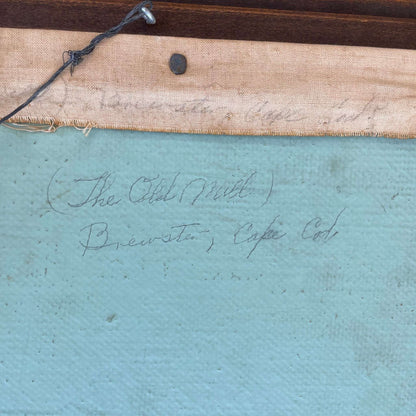 Brewster, Cape Cod
(The Old Mill)
Brewster, Cape Cod